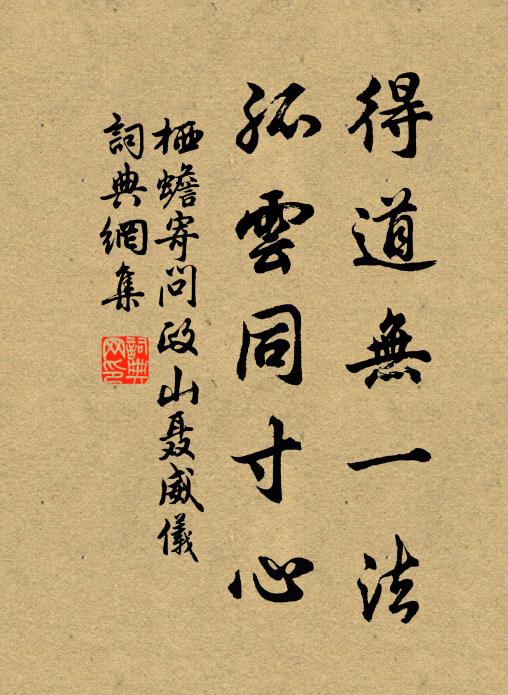 得道無一法
孤雲同寸心
栖蟾寄問政山聂威儀
詞典網集
詞典網印